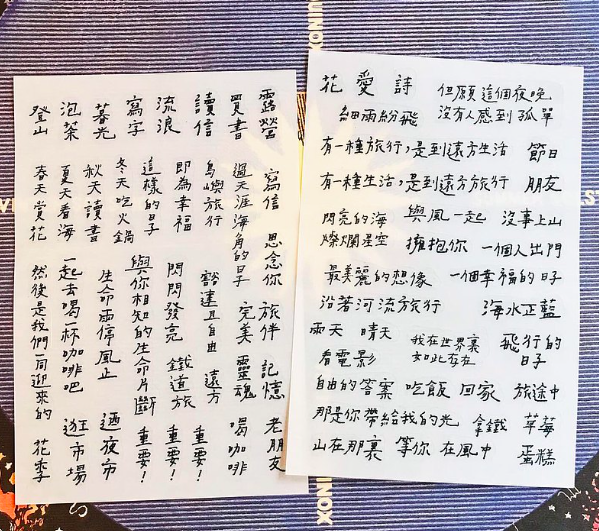 露營 寫信 思念你 旅伴 記憶 老朋友
買書 過天涯海角的日子 完美 靈魂 喝咖啡
讀信 島嶼旅行 豁達且自由 遠方 重要！
流浪 即為幸福 閃閃發亮 鐵道旅 重要！
寫字 這樣的日子 與你相知的生命片斷 重要！
暮光 冬天吃火鍋 生命雨停風止 夜市
秋天讀書
泡茶 夏天看海 一起去喝一杯咖啡吧 逛市場
登山 春天賞花 然後是我們一同迎來的 花季
花 愛 詩 但願這個夜晚
細雨紛飛 沒有人感到孤單
有一種旅行，是到遠方生活 節日
有一種生活，是到遠方旅行 朋友
閃亮的海 與風一起 沒事上山
燦爛星空 擁抱你 一個人出門
最美麗的想像 一個幸福的日子
沿著河流旅行 海水正藍
雨天 晴天 我在世界裏 飛行的
看電影 如此存在 日子
自由的答案 吃飯 回家 旅途中
那是你帶給我的光 拿鐵 草莓
山在那裏 等你 在風中 蛋糕
UINOX
UINOX